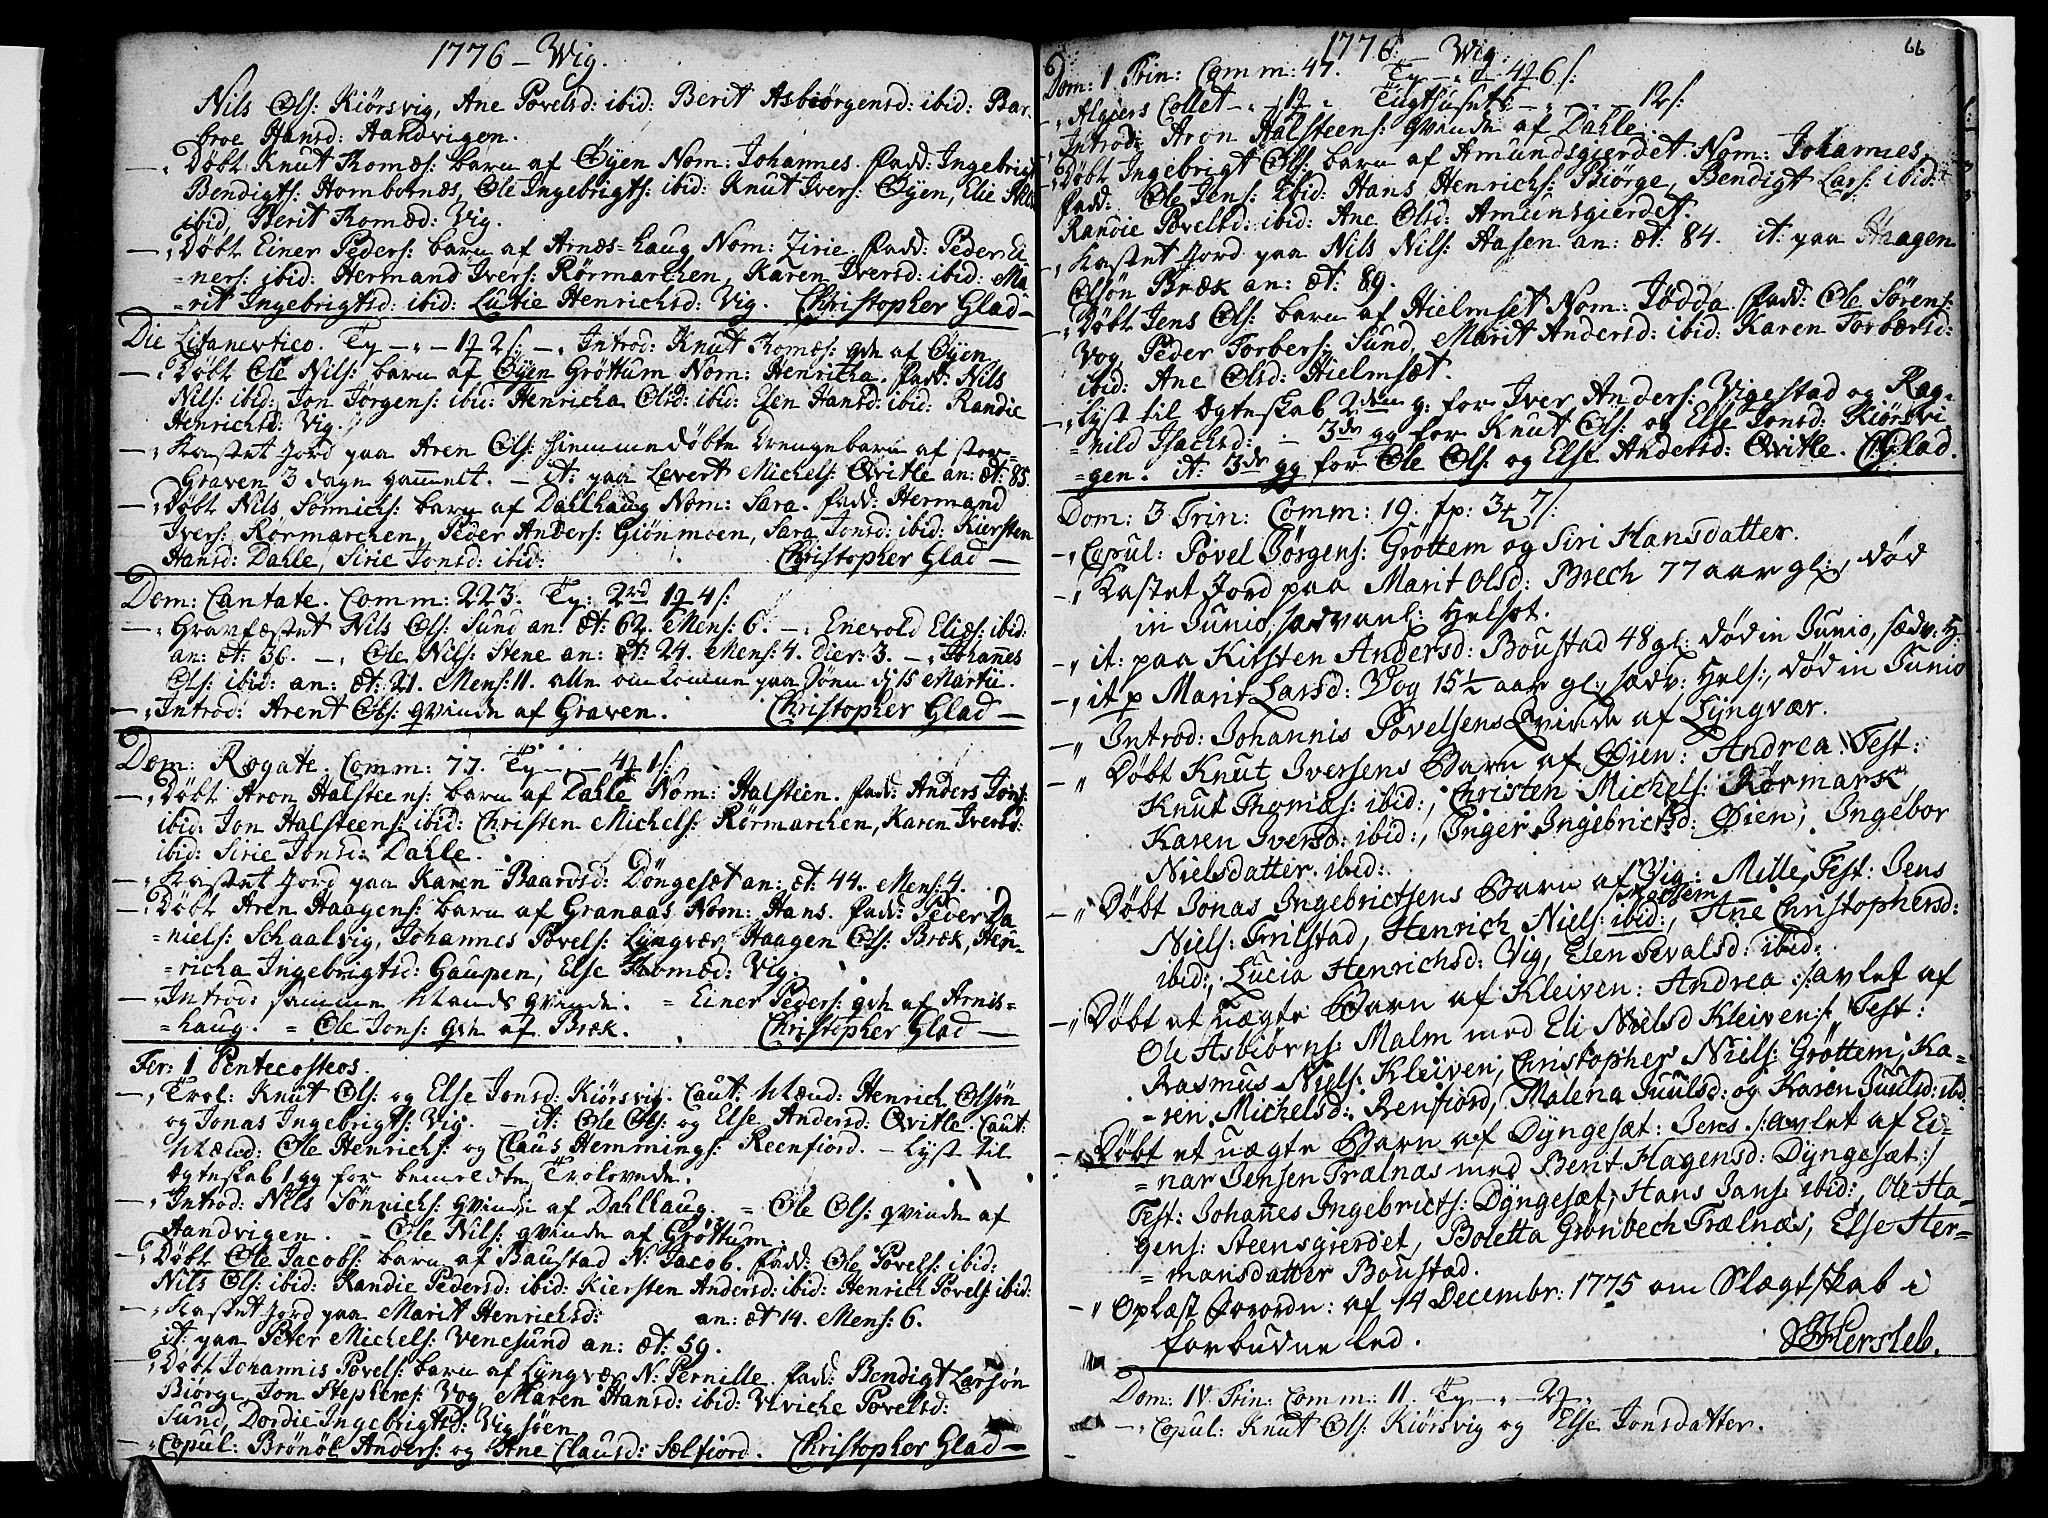 1776 - Wig.
Nils Ols: Kiörsvig, Ane Povelsd: ibid: Berit Asbiörgensd: ibid: Bar-
broe Hansd: Aandvigen.
-„ Döbt Knut Thomæs: barn af Öÿen Nom: Johannes. fadd: Ingebrigt
Bendigts: Hombornæs, Ole Ingebrigts: ibid: Knut Ivers: Öÿen, Elie
ibid, Berit Thomæd: Vig.
-„ Döbt Einer Peders: barn af Arnæs-haug Nom: Zirie. fadd: Peder Ei
=ners: ibid: Hermand Ivers: Rörmarchen, Karen Iversd: ibid: Ma
=rit Ingebrigtsd: ibid: Lucie Henrichsd: Vig. Christopher Glad -
Die Litanevtico. Ty - „ - 1 2 s: -„ Introd: Knut Thomæs: qvn af Öÿen
-„ Döbt Ole Nils: barn af Öÿen Gröttum Nom: Henricha. fadd: Nils
Nils: ibid: Jon Jörgens: ibid: Henricha Olsd: ibid: Elen Hansd: ibid: Randie
Henrichsd: Vig.
-„ Kastet Jord paa Aren Ols: hiemmedöbte Drengebarn af stor-
Graven 3 dage gammel. - it: paa Levert Michels: Qvitle an: æt: 85.
-„ Döbt Nils Sönnichs: barn af Dahlhaug Nom: Sara. fadd: Hermand
Ivers: Rörmarchen, Peder Anders: Giönmoen, Sara Jonsd: ibid: Kiersten
Hansd: Dahle, Sirie Jonsd: ibid: Christopher Glad -
Dom: Cantate. Comm: 223. Ty: 2rd 1 4 s:
-„ Gravfæstet Nils Ols: Sund an: æt: 62. Mens: 6. -„ Enevold Eliæs: ibid:
an: æt: 36. -„ Ole Nils: Stene an: æt: 24. Mens: 4. dier: 3. -„ Johañes
Ols: ibid: an: æt: 21. Mens: 11. alle omkomne paa Söen d: 15 Martii.
-„ Introd: Arent Ols: qvinde af Graven. Christopher Glad -
Dom: Rogate. Comm: 77. Ty -„- 4 1 s:
-„ Döbt Aron Halsteens: barn af Dahle Nom: Halsteen. fadd: Anders Jons:
ibid: Jon Halsteens: ibid: Christen Michels: Rörmarchen, Karen Iversd:
ibid: Sirie Jonsd: Dahle.
-„ Kastet Jord paa Karen Baardsd: Döngesæt an: æt: 44. Mens: 4.
-„ Döbt Aren Haagens: barn af Granaas Nom: Hans. fadd: Peder Da
=niels: Schaalvig, Johannes Povels: Lyngvær, Haagen Ols: Bræk, Hen-
=richa Ingebrigtsd: Gaupen, Else Thomæd: Vig.
-„ Introd: samme Mands qvinde. = Einer Peders: qvn af Arnis-
=haug. = Ole Jons: qvn af Bræk. Christopher Glad -
Fer: 1 Pentecosteos.
-„ Trol: Knut Ols: og Else Jonsd: Kiörsvig. Caut: Mænd: Henrich Olsön
og Jonas Ingebrigts: Vig. - it: Ole Ols: og Else Andersd: Qvitle. Caut:
Mænd: Ole Henrichs: og Claus Hemmings: Reenfiord. - Lyst til
Egteskab 1 gg for bemeldte Trolovede.
-„ Introd: Nils Sönnichs: qvinde af Dahlhaug. = Ole Ols: qvinde af
Aandvigen. = Ole Nils: qvinde af Gröttum.
-„ Döbt Ole Jacobs: barn af Baustad N: Jacob. fadd: Ole Povels: ibid:
Nils Ols: ibid: Randie Pedersd: ibid: Kiersten Andersd: ibid: Henrich Povels: ibid:
-„ Kastet Jord paa Marit Henrichsd: an: æt 14. Mens: 6.
it: paa Peter Michels: Venesund an: æt: 59.
-„ Döbt Johannis Povels: barn af Lyngvær N: Pernille. fadd: Bendigt Larsön
Biörge, Jon Stephens: Vog Maren Hansd: ibid: Viviche Povelsd:
Sund, Dordie Ingebrigtsd: Vigsöen.
-„ Copul: Brönöl Anders: og Ane Clausd: Sælfiord. Christopher Glad -
1776. Wig.
66
Dom: 1 Trin: Comm: 47. Ty - „ 4 6 s:
-„ Algiers Collet - „ 1 „ Tugthuset: - „ 12 s:
-„ Introd: Aron Halsteens: qvinde af Dahle.
-„ Döbt Ingebrigt Ols: barn af Amundsgierdet. Nom: Johannes.
fadd: Ole Jens: ibid: Hans Henrichs: Biörge, Bendigt Lars: ibid:
Randie Povelsd: ibid: Ane Olsd: Amunsgierdet.
-„ Kastet Jord paa Nils Nils: Hasen an: æt: 84. it: paa Haagen
Olsön Bræk an: æt: 89.
-„ Döbt Jens Ols: barn af Hielmset Nom: Jödda. fadd: Ole Sörens:
Vog, Peder Torbers: Sund, Marit Andersd: ibid: Karen Torbersd:
ibid: Ane Olsd: Hielmsæt.
-„ Lyst til Egteskab 2den g: for Iver Anders: Vigestad og Rag-
=nild Isachsd: - 3de gg for Knut Ols: og Else Jonsd: Kiörsvi
=gen. it: 3de gg for Ole Ols: og Else Andersd: Qvitle. CGlad.
Dom: 3 Trin: Comm: 19. fp: 3 7 s:
-„ Copul: Povel Jörgens: Gröttem og Siri Hansdatter.
-„ Kastet Jord paa Marit Olsd: Brech 77 aar gl:, död
in Junio, sædvanl: Helsot.
-„ it: paa Kirsten Andersd: Boustad 48 gl: död in Junio, sædv: H.
-„ it p Marit Larsd: Vog 15 1/2 aar gl:, sædv: Hels:, död in Junio
-„ Introd: Johannis Povelsens Qvinde af Lyngvær.
-„ Döbt Knut Iversens Barn af Öien: Andrea. Test:
Knut Thomæs: ibid:, Christen Michels: Rörmark
Karen Iversd: ibid:, Inger Ingebrictsd: Öien, Ingebor
Nielsdatter ibid:
-„ Döbt Jonas Ingebrictsens Barn af Vig: Mille, Test: Jens
Niels: Trilstad, Henrich Niels: ibid:, Grøttem Añe Christophersd:
ibid:, Lucia Henrichsd: Vig, Elen Sevalsd: ibid:
-„ Döbt et uægte Barn af Kleiven: Andrea /: avlet af
Ole Asbiörns: Malm med Eli Nielsd Kleiven :/ Test:
Rasmus Niels: Kleiven, Christopher Niels: Gröttem, Ka-
=ren Michelsd: Renfiord, Malena Juulsd: og Karen Juulsd: ibd:
-„ Döbt et uægte Barn af Dyngesæt: Jens. /: avlet af Ei-
=nar Jensen Trælnæs med Berit Hagensd: Dyngesæt :/
Test: Johañes Ingebricts: Dyngesæt, Hans Jans: ibid:, Ole Ha-
gens: Steensgierdet, Boletta Grönbech Trælnæs, Else Her-
=mansdatter Boustad.
-„ Oplæst Forordn: af 14 Decembr: 1775 om Slægtskab i
forbudne Led. Hersleb.
Dom: IV. Trin: Comm: 11. Ty - „ - 2
-„ Copul: Knut Ols: Kiörsvig og Else Jonsdatter.